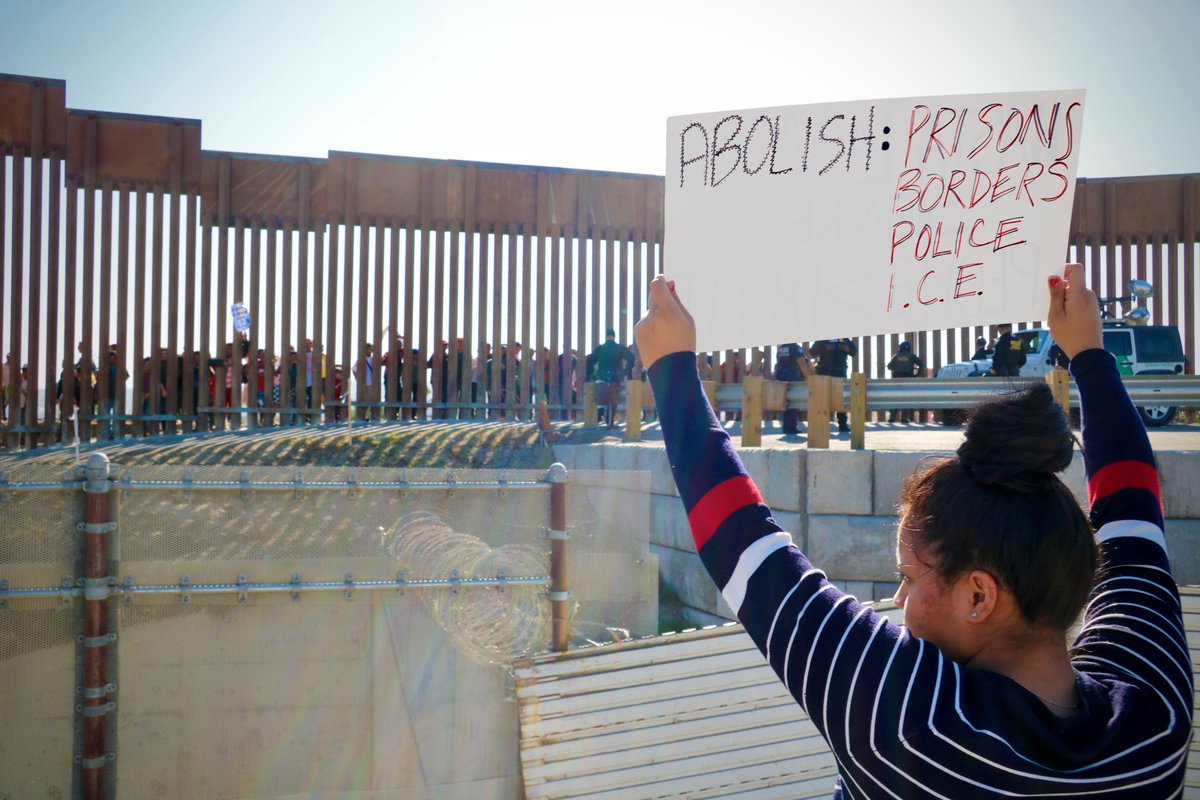 ABOLISH: PRISONS
BORDERS
POLICE
I.C.E.